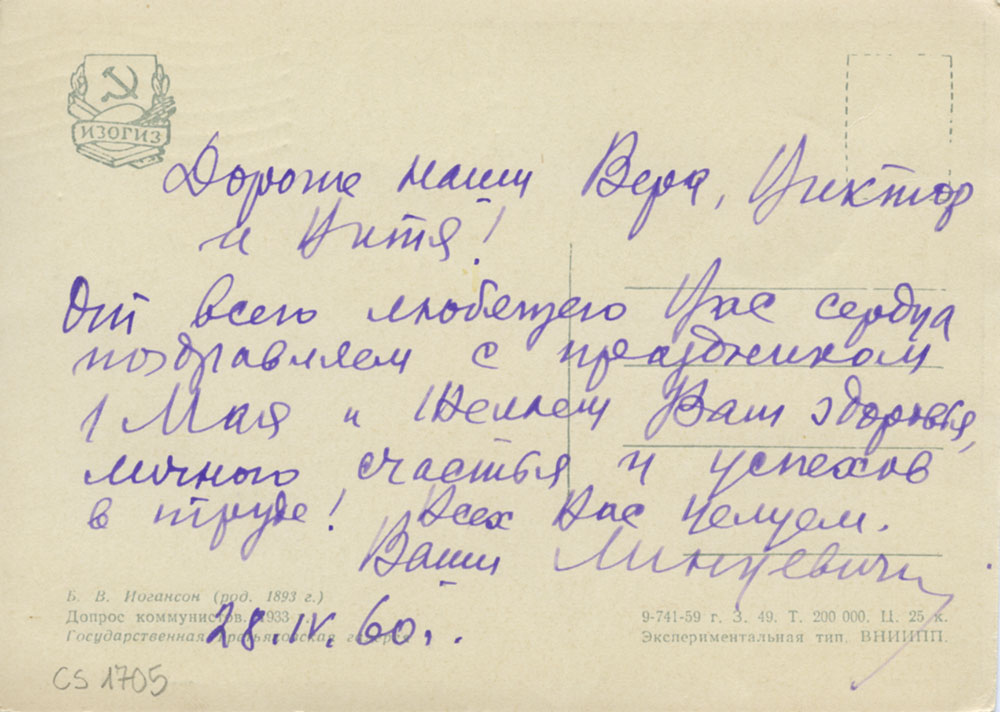 ИЗОГИЗ
Дорогие наши Вера, Виктор
и Витя!
От всего любящего Вас сердца
поздравляем с праздником
1 Мая и желаем Вам здоровья,
личного счастья и успехов
в труде! Всех Вас целуем.
Ваши
28.IV.60г.
Б. В. Иогансон (род. 1893 г.)
Допрос коммунистов. 1933
Государственная Третьяковская галерея
9-741-59 г. З. 49. Т. 200 000. Ц. 25 к.
Экспериментальная тип. ВНИИПП.
CS 1705